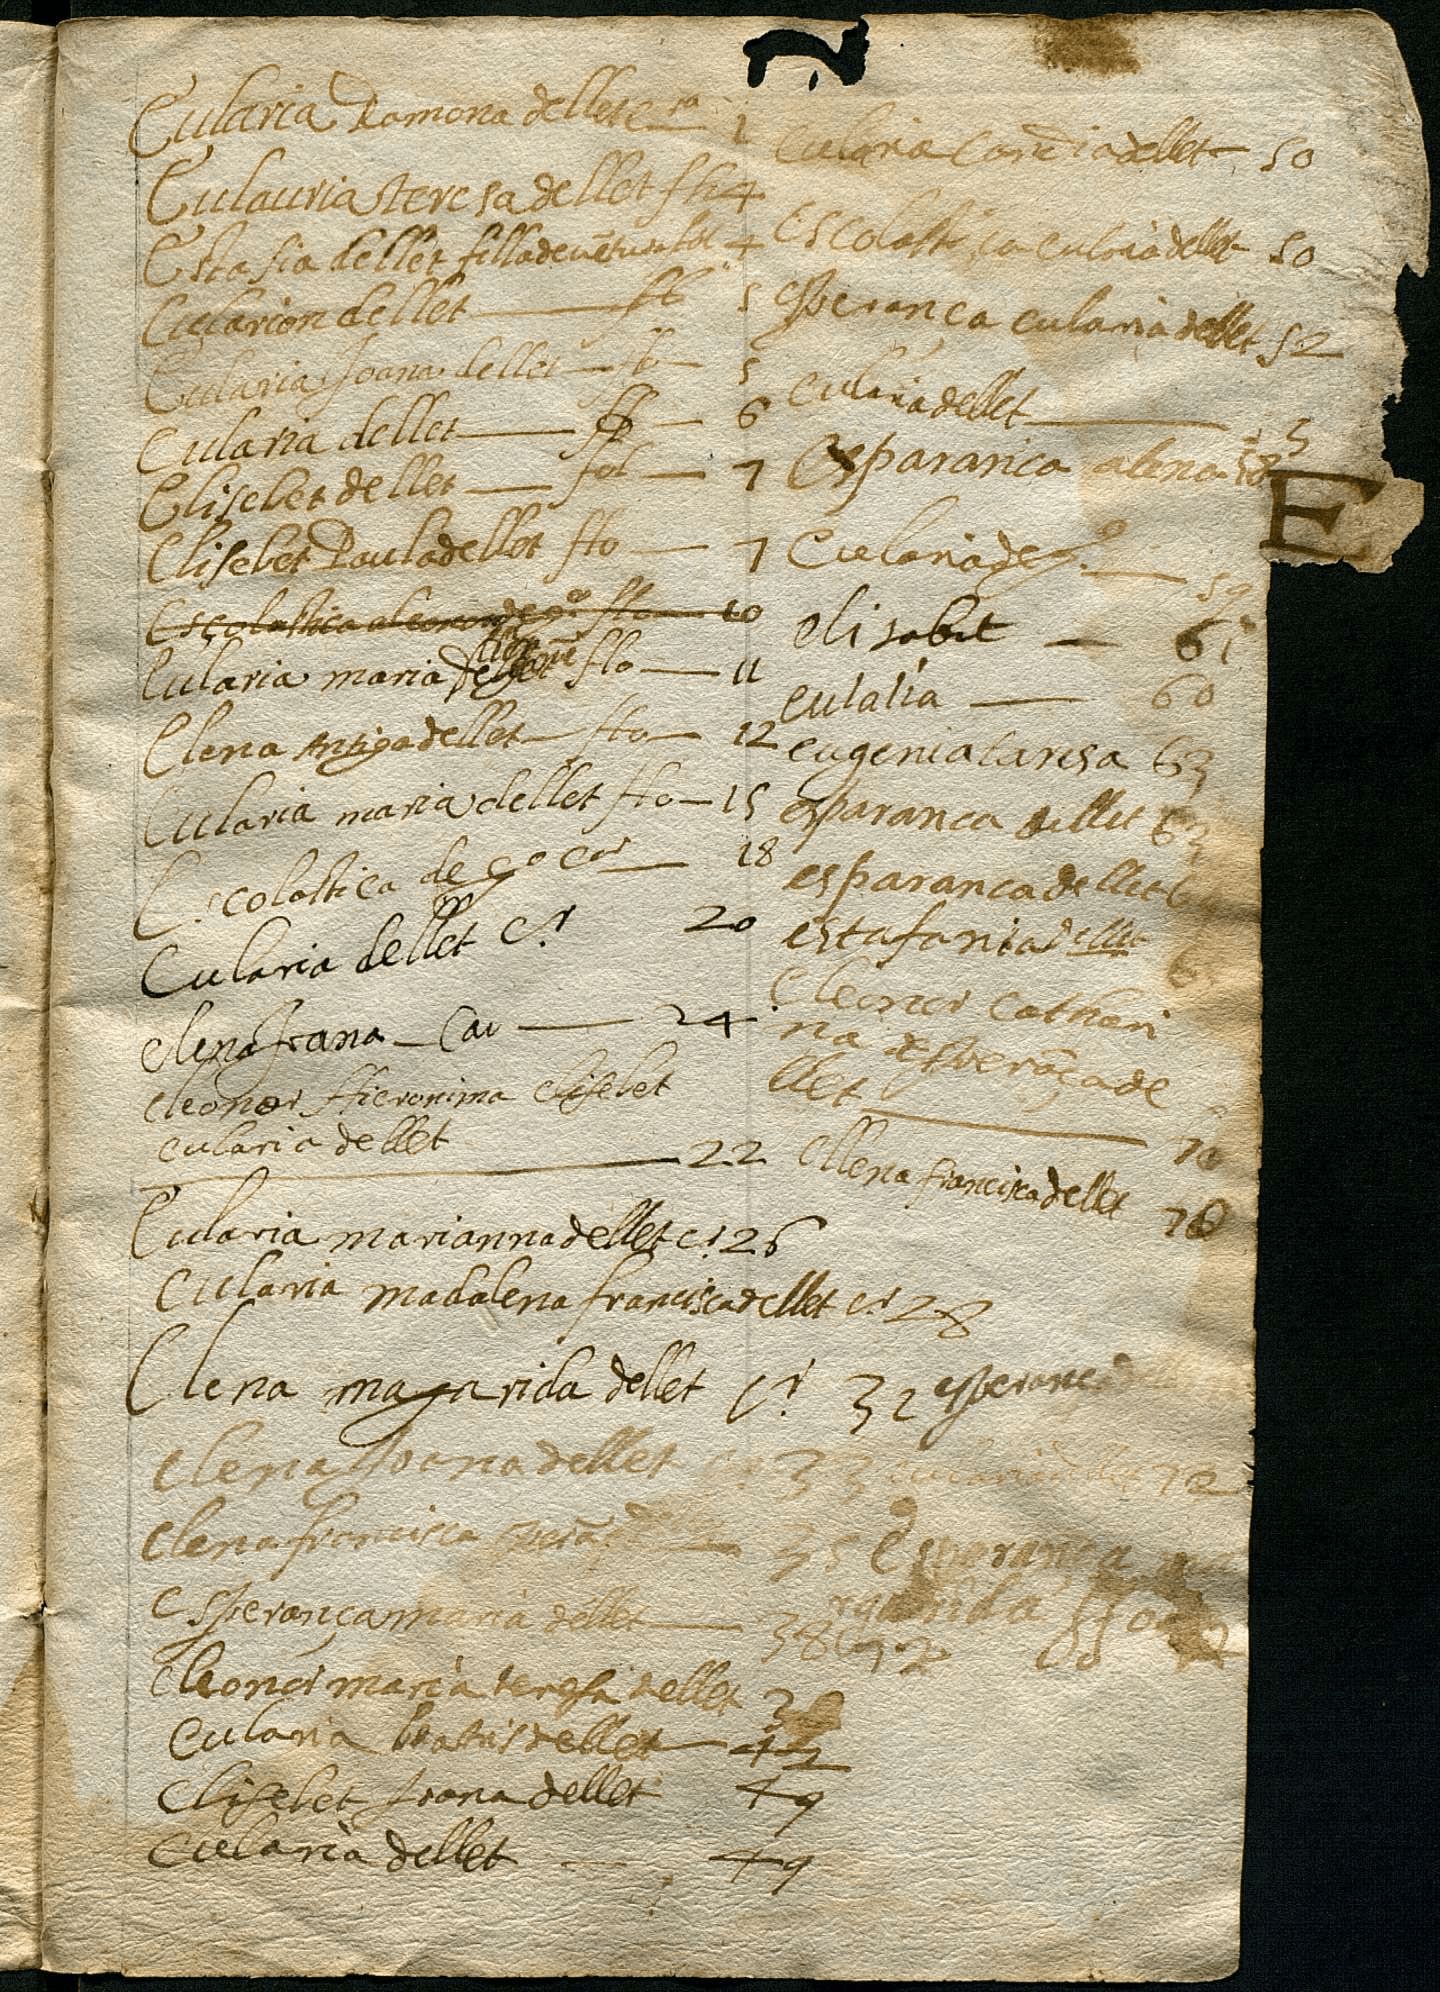 Eularia Ramona dellet C ra 1
Eulauria teresa dellet ffo 4
Estasia dellet filla de ventura fol 4
Eularion dellet ffo 5
Eularia Joana dellet ffo 5
Eularia dellet ff 6
Elisebet dellet fol 7
Elisebet Paula dellet ffo 7
Escolastica aleonor de go ffo 10
Eularia maria de ffo 11
Elena Antiga dellet ffo 12
Eularia maria dellet ffo 15
Escolastica de go Car 18
Eularia dellet Cr 20
elena Joana Car 24
eleonor Hieronima elisebet
eularia dellet 22
Eularia marianna dellet cr 26
Eularia madalena francisca dellet cr 28
Elena magarida dellet Cr 32
elena Joana dellet 33
elena francisca 35
Esperança maria dellet 38
Eleonor maria teresa dellet 38
Eularia beatris dellet 42
Elisebet Joana dellet 49
Eularia dellet 49
Eularia dellet 50
Escolastica eularia dellet 50
esperança eularia dellet 52
eularia dellet 5
esparanca alena 58
E
Eularia de go 59
elisabet 61
eulalia 60
eugenia taresa 63
esparanca dellet 63
esparanca dellet 6
estafania dellet 6
Eleonor Catheri
na esperāça de
llet 70
ellena francisca dellet 70
esperança
72
Esperança
garida
72